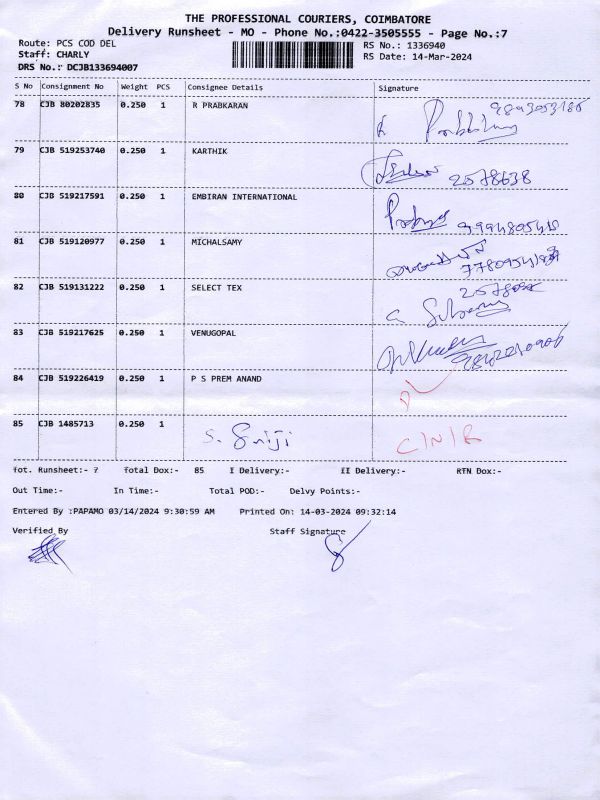 THE PROFESSIONAL COURIERS, COIMBATORE
Delivery Runsheet - MO - Phone No.:0422-3505555 - Page No.:7
Route: PCS COD DEL RS No.: 1336940
Staff: CHARLY RS Date: 14-Mar-2024
DRS No.: DCJB133694007
S No Consignment No Weight PCS Consignee Details Signature
78 CJB 80202835 0.250 1 R PRABKARAN
79 CJB 519253740 0.250 1 KARTHIK 2578638
80 CJB 519217591 0.250 1 EMBIRAN INTERNATIONAL
81 CJB 519120977 0.250 1 MICHALSAMY
82 CJB 519131222 0.250 1 SELECT TEX
83 CJB 519217625 0.250 1 VENUGOPAL
84 CJB 519226419 0.250 1 P S PREM ANAND
85 CJB 1485713 0.250 1 S. Sriji C/N/R
Tot. Runsheet:- 7 Total Box:- 85 I Delivery:- II Delivery:- RTN Box:-
Out Time:- In Time:- Total POD:- Delvy Points:-
Entered By :PAPAMO 03/14/2024 9:30:59 AM Printed On: 14-03-2024 09:32:14
Verified By Staff Signature